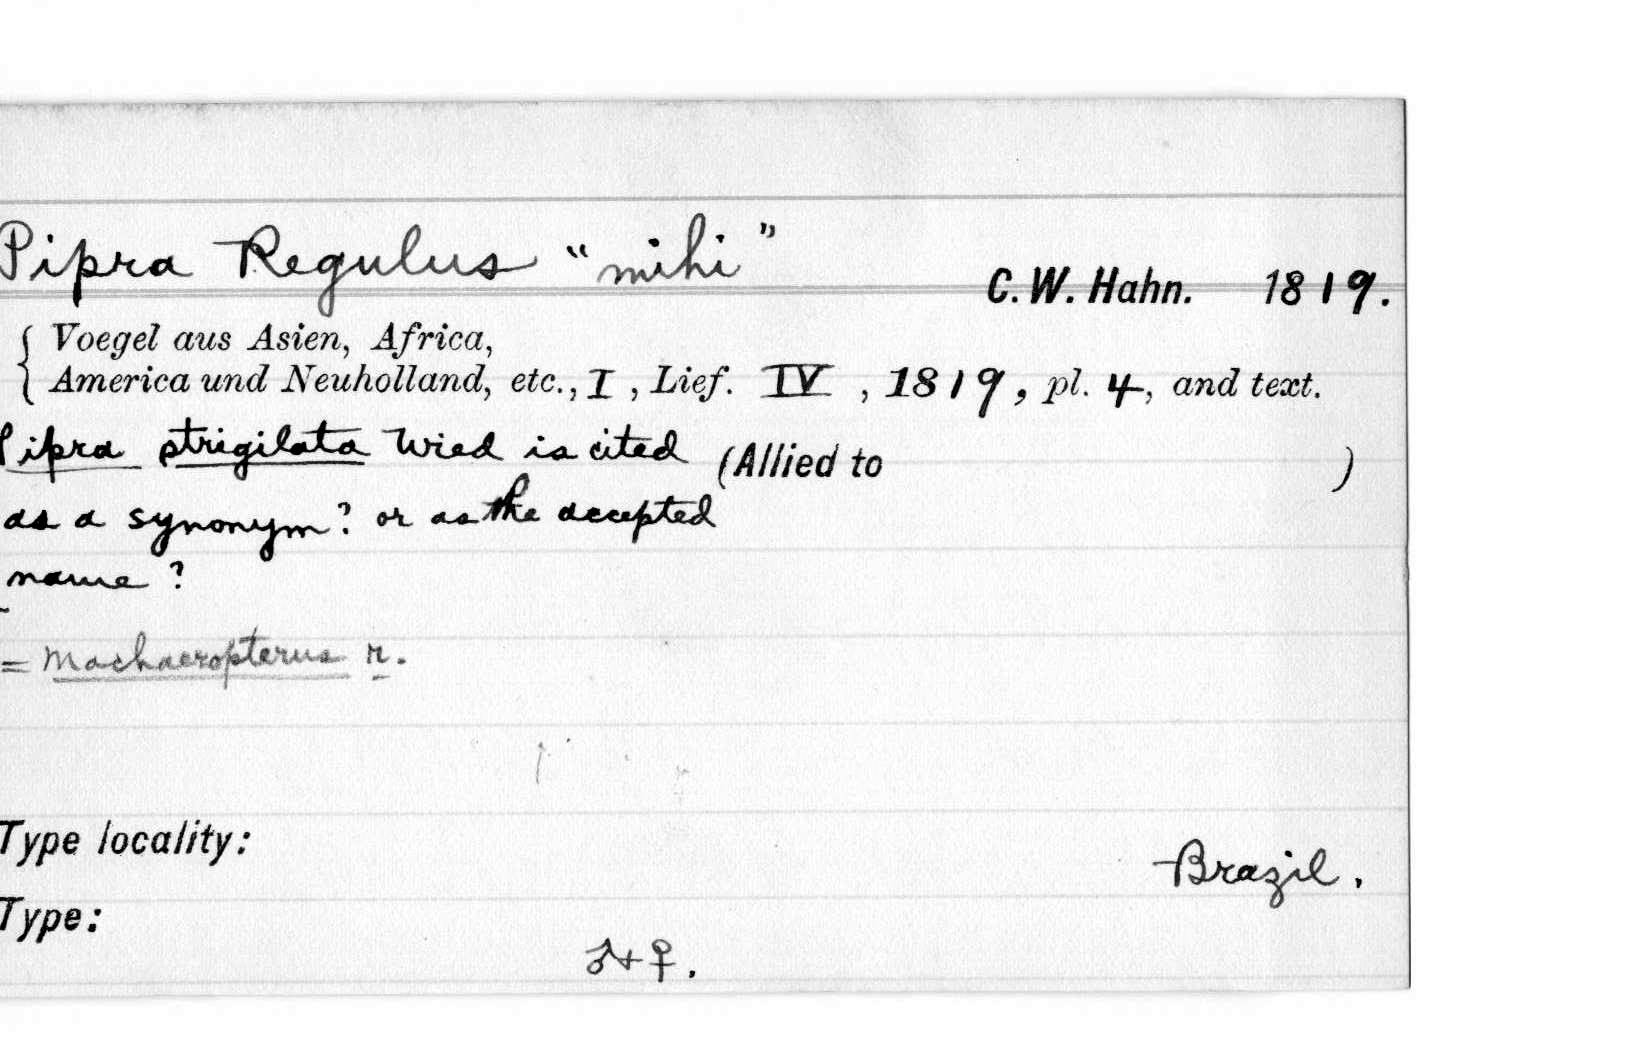 Pipra Regulus "mihi"
C. W. Hahn. 1819.
Voegel aus Asien, Africa,
America und Neuholland, etc., I, Lief. IV, 1819, pl. 4, and text.
Pipra strigilata Wied is cited (Allied to )
as a synonym? or as the accepted
name?
= Machaeropterus r.
Type locality:
Brazil.
Type:
♂+♀.